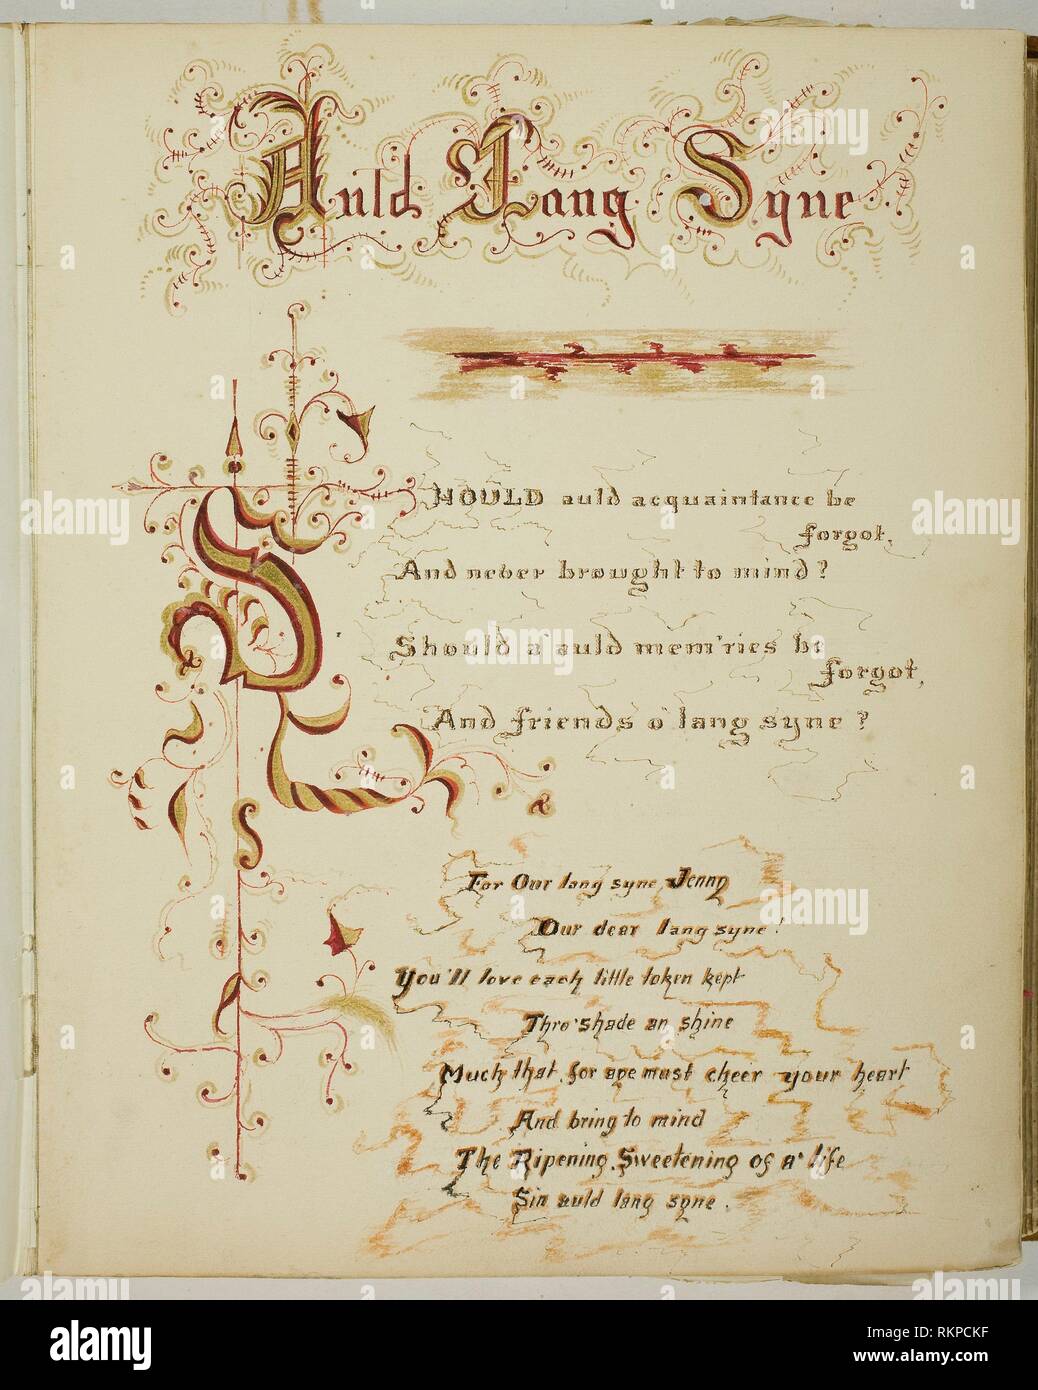 Auld Lang Syne
SHOULD auld acquaintance be
forgot,
And never brought to mind?
Should a' auld mem'ries be
forgot,
And friends o' lang syne?
For Our lang syne Jenny
Our dear lang syne!
You'll love each little token kept
Thro' shade an shine
Much that, for aye must cheer your heart
And bring to mind
The Ripening, Sweetening of a' life
Sin auld lang syne.
alamy
Image ID: RKPCKF
www.alamy.com